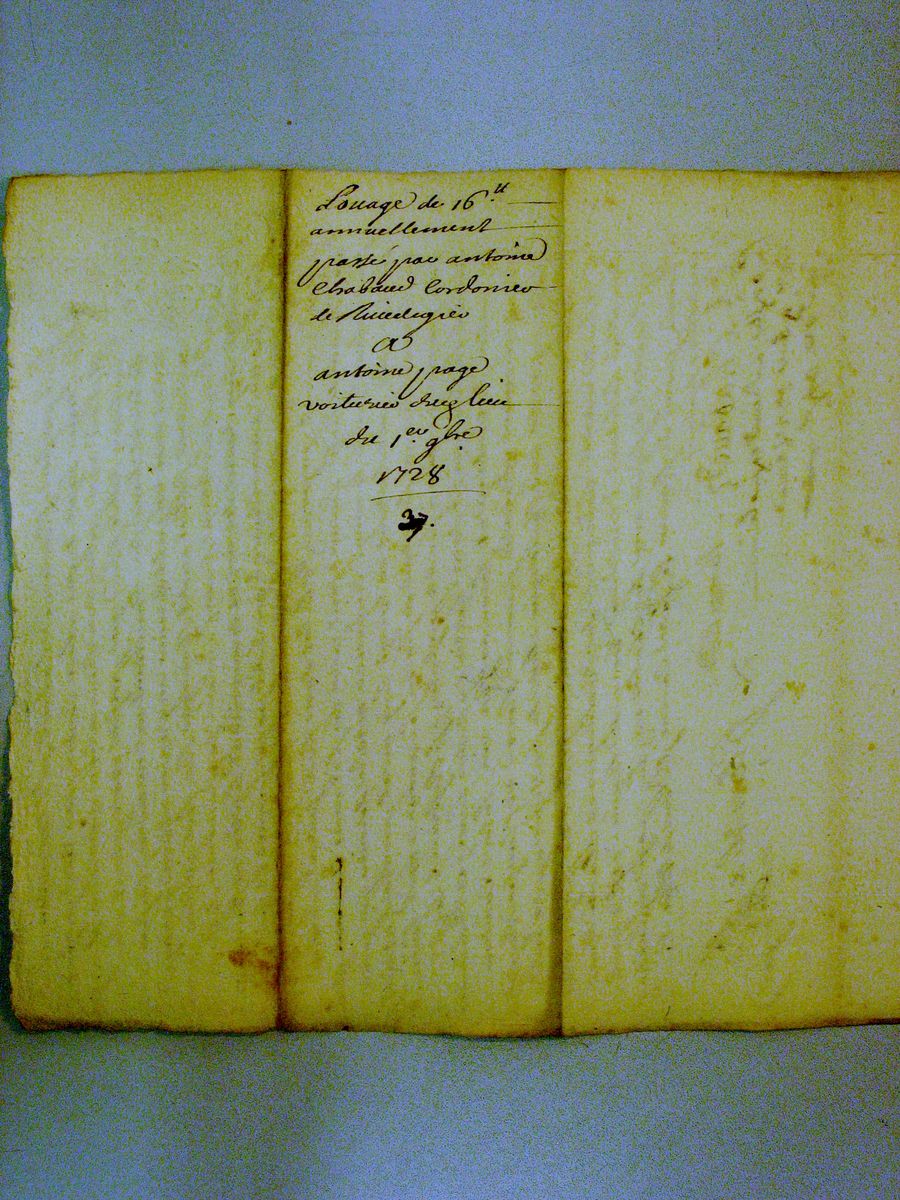 Louage de 16.ᵗᵗ
annuellement
passé par antoine
Chabaud Cordonier
de Rivedegier
A
antoine page
voiturier dud lieu
du 1.er 9bre
1728
37.